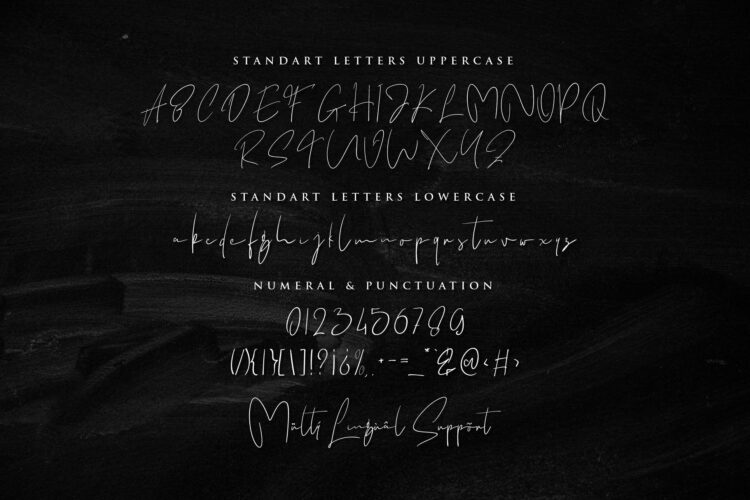 STANDART LETTERS UPPERCASE
ABCDEFGHIJKLMNOPQ
RSTUVWXYZ
STANDART LETTERS LOWERCASE
abcdefghijklmnopqrstuvwxyz
NUMERAL & PUNCTUATION
0123456789
(/){|}[\]!?¡¿%,.+-=_*`&@‹#›
Mültí Lingüâl Suppõrt